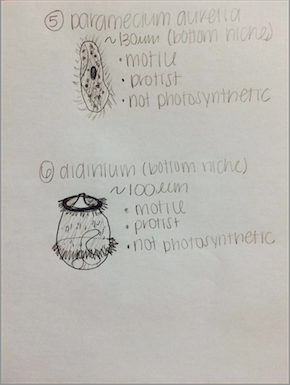 ⑤ paramecium aurelia
~130um (bottom niche)
• motile
• protist
• not photosynthetic
⑥ didinium (bottom niche)
~100um
• motile
• protist
• not photosynthetic